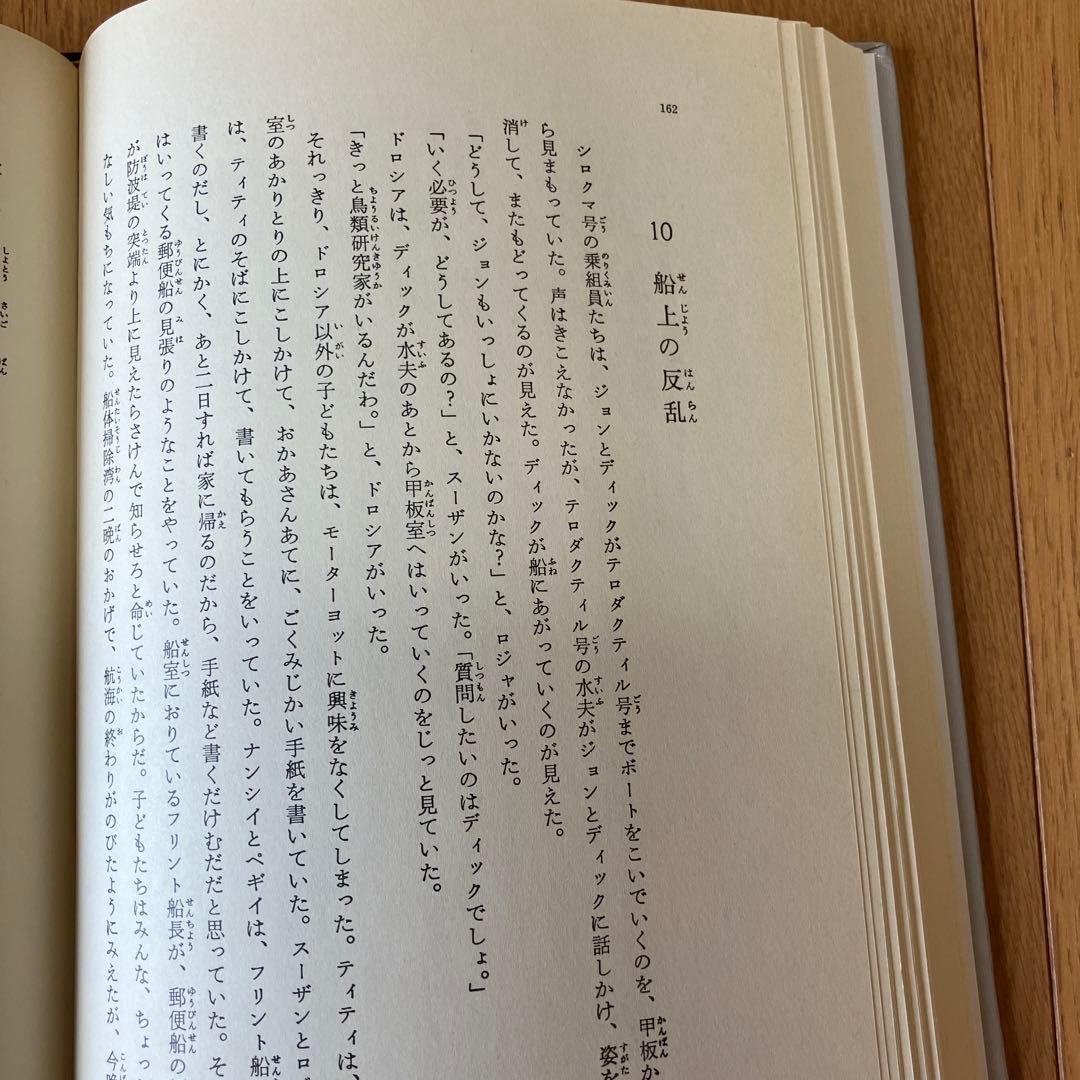 162
10 船上の反乱
シロクマ号の乗組員たちは、ジョンとディックがテロダクティル号までボートをこいでいくのを、甲板か
ら見まもっていた。声はきこえなかったが、テロダクティル号の水夫がジョンとディックに話しかけ、姿を
消して、またもどってくるのが見えた。ディックが船にあがっていくのが見えた。
「どうして、ジョンもいっしょにいかないのかな?」と、ロジャがいった。
「いく必要が、どうしてあるの?」と、スーザンがいった。「質問したいのはディックでしょ。」
ドロシアは、ディックが水夫のあとから甲板室へはいっていくのをじっと見ていた。
「きっと鳥類研究家がいるんだわ。」と、ドロシアがいった。
それっきり、ドロシア以外の子どもたちは、モーターヨットに興味をなくしてしまった。ティティは、
室のあかりとりの上にこしかけて、おかあさんあてに、ごくみじかい手紙を書いていた。スーザンとロ
は、ティティのそばにこしかけて、書いてもらうことをいっていた。ナンシイとペギイは、フリント船
書くのだし、とにかく、あと二日すれば家に帰るのだから、手紙など書くだけむだだと思っていた。そ
はいってくる郵便船の見張りのようなことをやっていた。船室におりているフリント船長が、郵便船の
が防波堤の突端より上に見えたらさけんで知らせろと命じていたからだ。子どもたちはみんな、ちょっ
なしい気もちになっていた。船体掃除湾の二晩のおかげで、航海の終わりがのびたようにみえたが、今晩